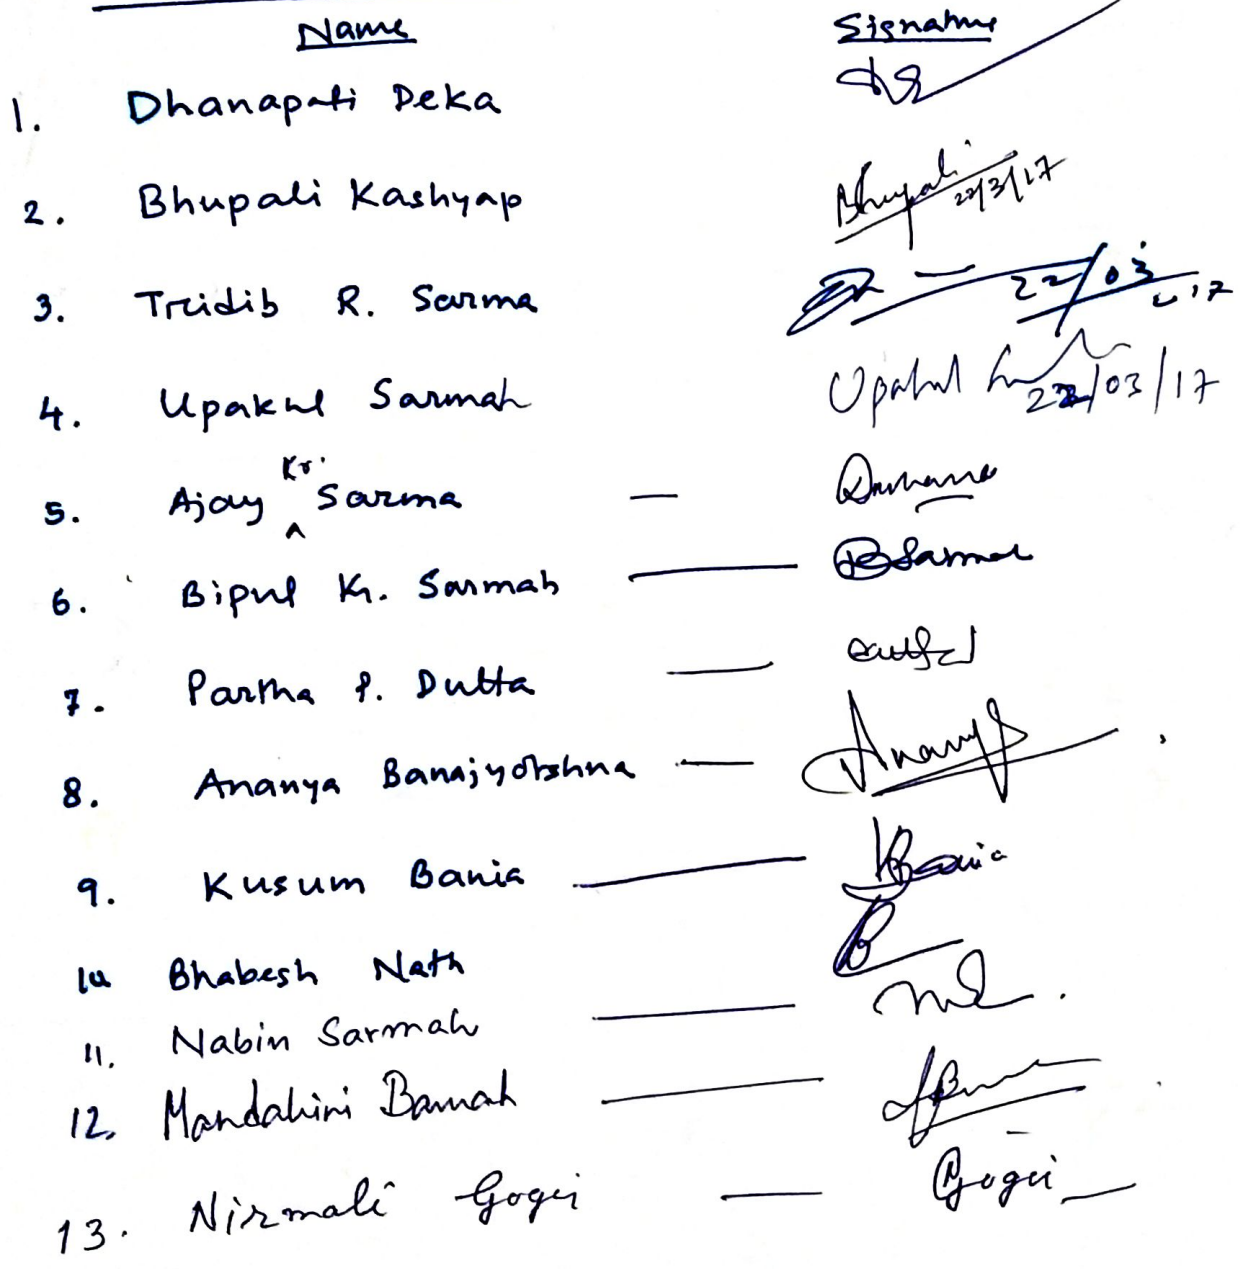 Name Signature
1. Dhanapati Deka
2. Bhupali Kashyap Bhupali 22/3/17
3. Tridib R. Sarma 22/03 17
4. Upakul Sarmah Upakul 22/03/17
5. Ajay Kr. Sarma —
6. Bipul Kr. Sarmah — BSarmah
7. Partha P. Dutta —
8. Ananya Banajyotshna — Ananya
9. Kusum Bania — KBania
10 Bhabesh Nath
11. Nabin Sarmah —
12. Mandakini Baruah —
13. Nirmali Gogoi — Gogoi